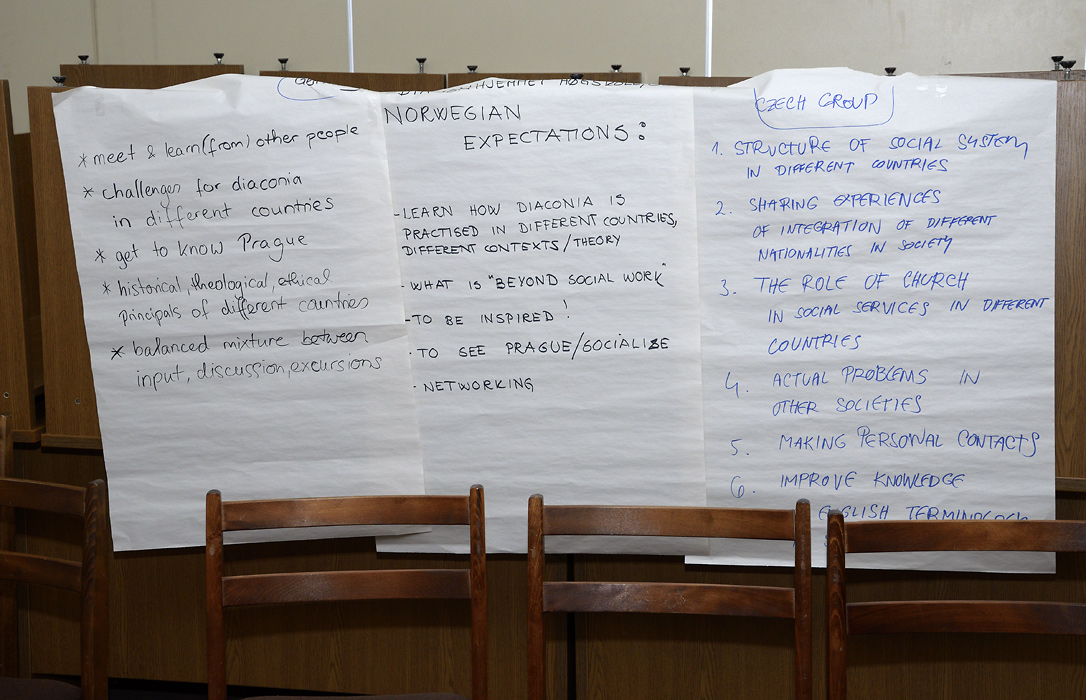 * meet & learn (from) other people
* challenges for diaconia
in different countries
* get to know Prague
* historical, theological, ethical
principals of different countries
* balanced mixture between
input, discussion, excursions
NORWEGIAN
EXPECTATIONS:
- LEARN HOW DIACONIA IS
PRACTISED IN DIFFERENT COUNTRIES,
DIFFERENT CONTEXTS/THEORY
- WHAT IS "BEYOND SOCIAL WORK"
- TO BE INSPIRED!
- TO SEE PRAGUE/SOCIALIZE
- NETWORKING
CZECH GROUP
1. STRUCTURE OF SOCIAL SYSTEM
IN DIFFERENT COUNTRIES
2. SHARING EXPERIENCES
OF INTEGRATION OF DIFFERENT
NATIONALITIES IN SOCIETY
3. THE ROLE OF CHURCH
IN SOCIAL SERVICES IN DIFFERENT
COUNTRIES
4. ACTUAL PROBLEMS IN
OTHER SOCIETIES
5. MAKING PERSONAL CONTACTS
6. IMPROVE KNOWLEDGE
ENGLISH TERMINOLOGY